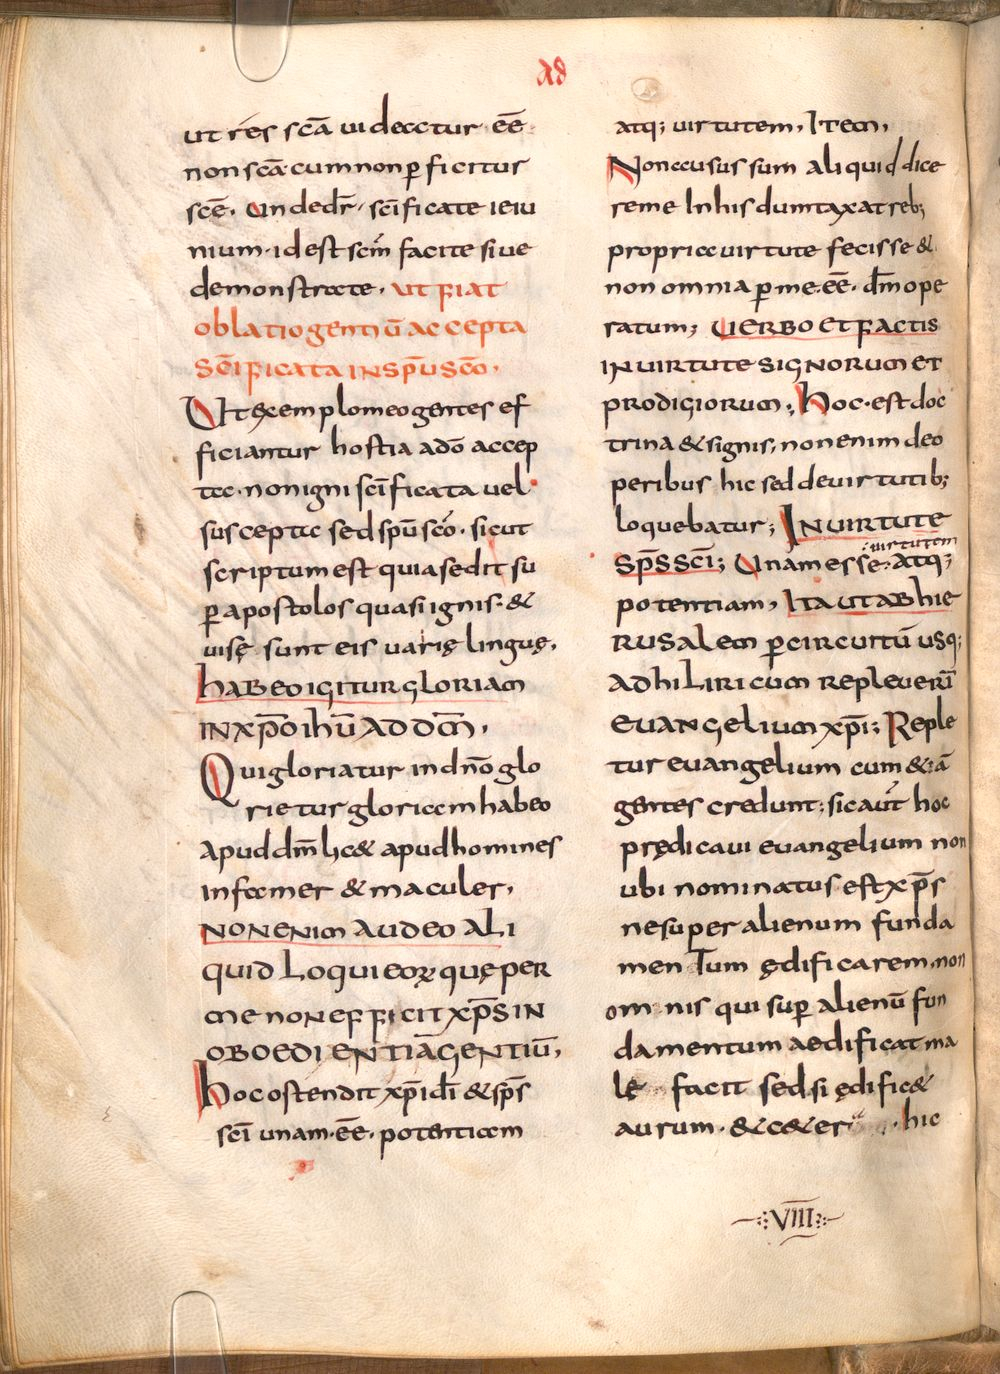 ad
ut res scā uidectur · eē
non scā · cum non ꝑficitur
scē · Unde dr̄ · scīficate ieiu
nium · id est scm̄ facite siue
demonstrate · UT FIAT
oblatio gentiū accepta
scīficata in spū scō ·
Ut exemplo meo gentes ef
ficiantur hostia adō accep
ta · non igni scīficata uel
suscepta sed spū scō · sicut
scriptum est quia sedit su
ꝑ apostolos quasi ignis · &
uisę sunt eis uarię linguę ·
habeo igitur gloriam
in xp̄o ihū ad dm̄ ·
Qui gloriatur in dnō glo
rietur gloriam habeo
apud dm̄ lic& apud homines
infamer & maculer ·
non enim audeo ali
quid loqui eoꝝ quę per
me non efficit xp̄s in
oboedientiā gentiū ·
hoc ostendit xp̄i dī & sp̄s
scī unam · eē · potentiam
atq; uirtutem · Item ·
Non ausus sum aliquid dice
reme In his dumtaxat reb;
propria uirtute fecisse &
non omnia ꝑ me · eē · dm̄ ope
ratum; Uerbo et factis
in uirtute signorum et
prodigiorum; hoc · est doc
trina & signis, non enim deo
peribus hic sed deuirtutib;
loquebatur; In uirtute
: uirtutem
sp̄s scī; Unam esse : atq;
potentiam, Ita ut ab hie
rusalem ꝑ circuitū usq;
ad hiliricum repleuerī
euangelium xp̄i; Reple
tur euangelium cum & iā
gentes credunt; sic aut̄ hoc
prędicaui euangelium non
ubi nominatus est xp̄s
ne super alienum funda
mentum ędificarem · non
omnis qui suꝑ alienū fun
damentum aedificat ma
lę facit sed si ędific&
aurum · & c&er · hic
VIII